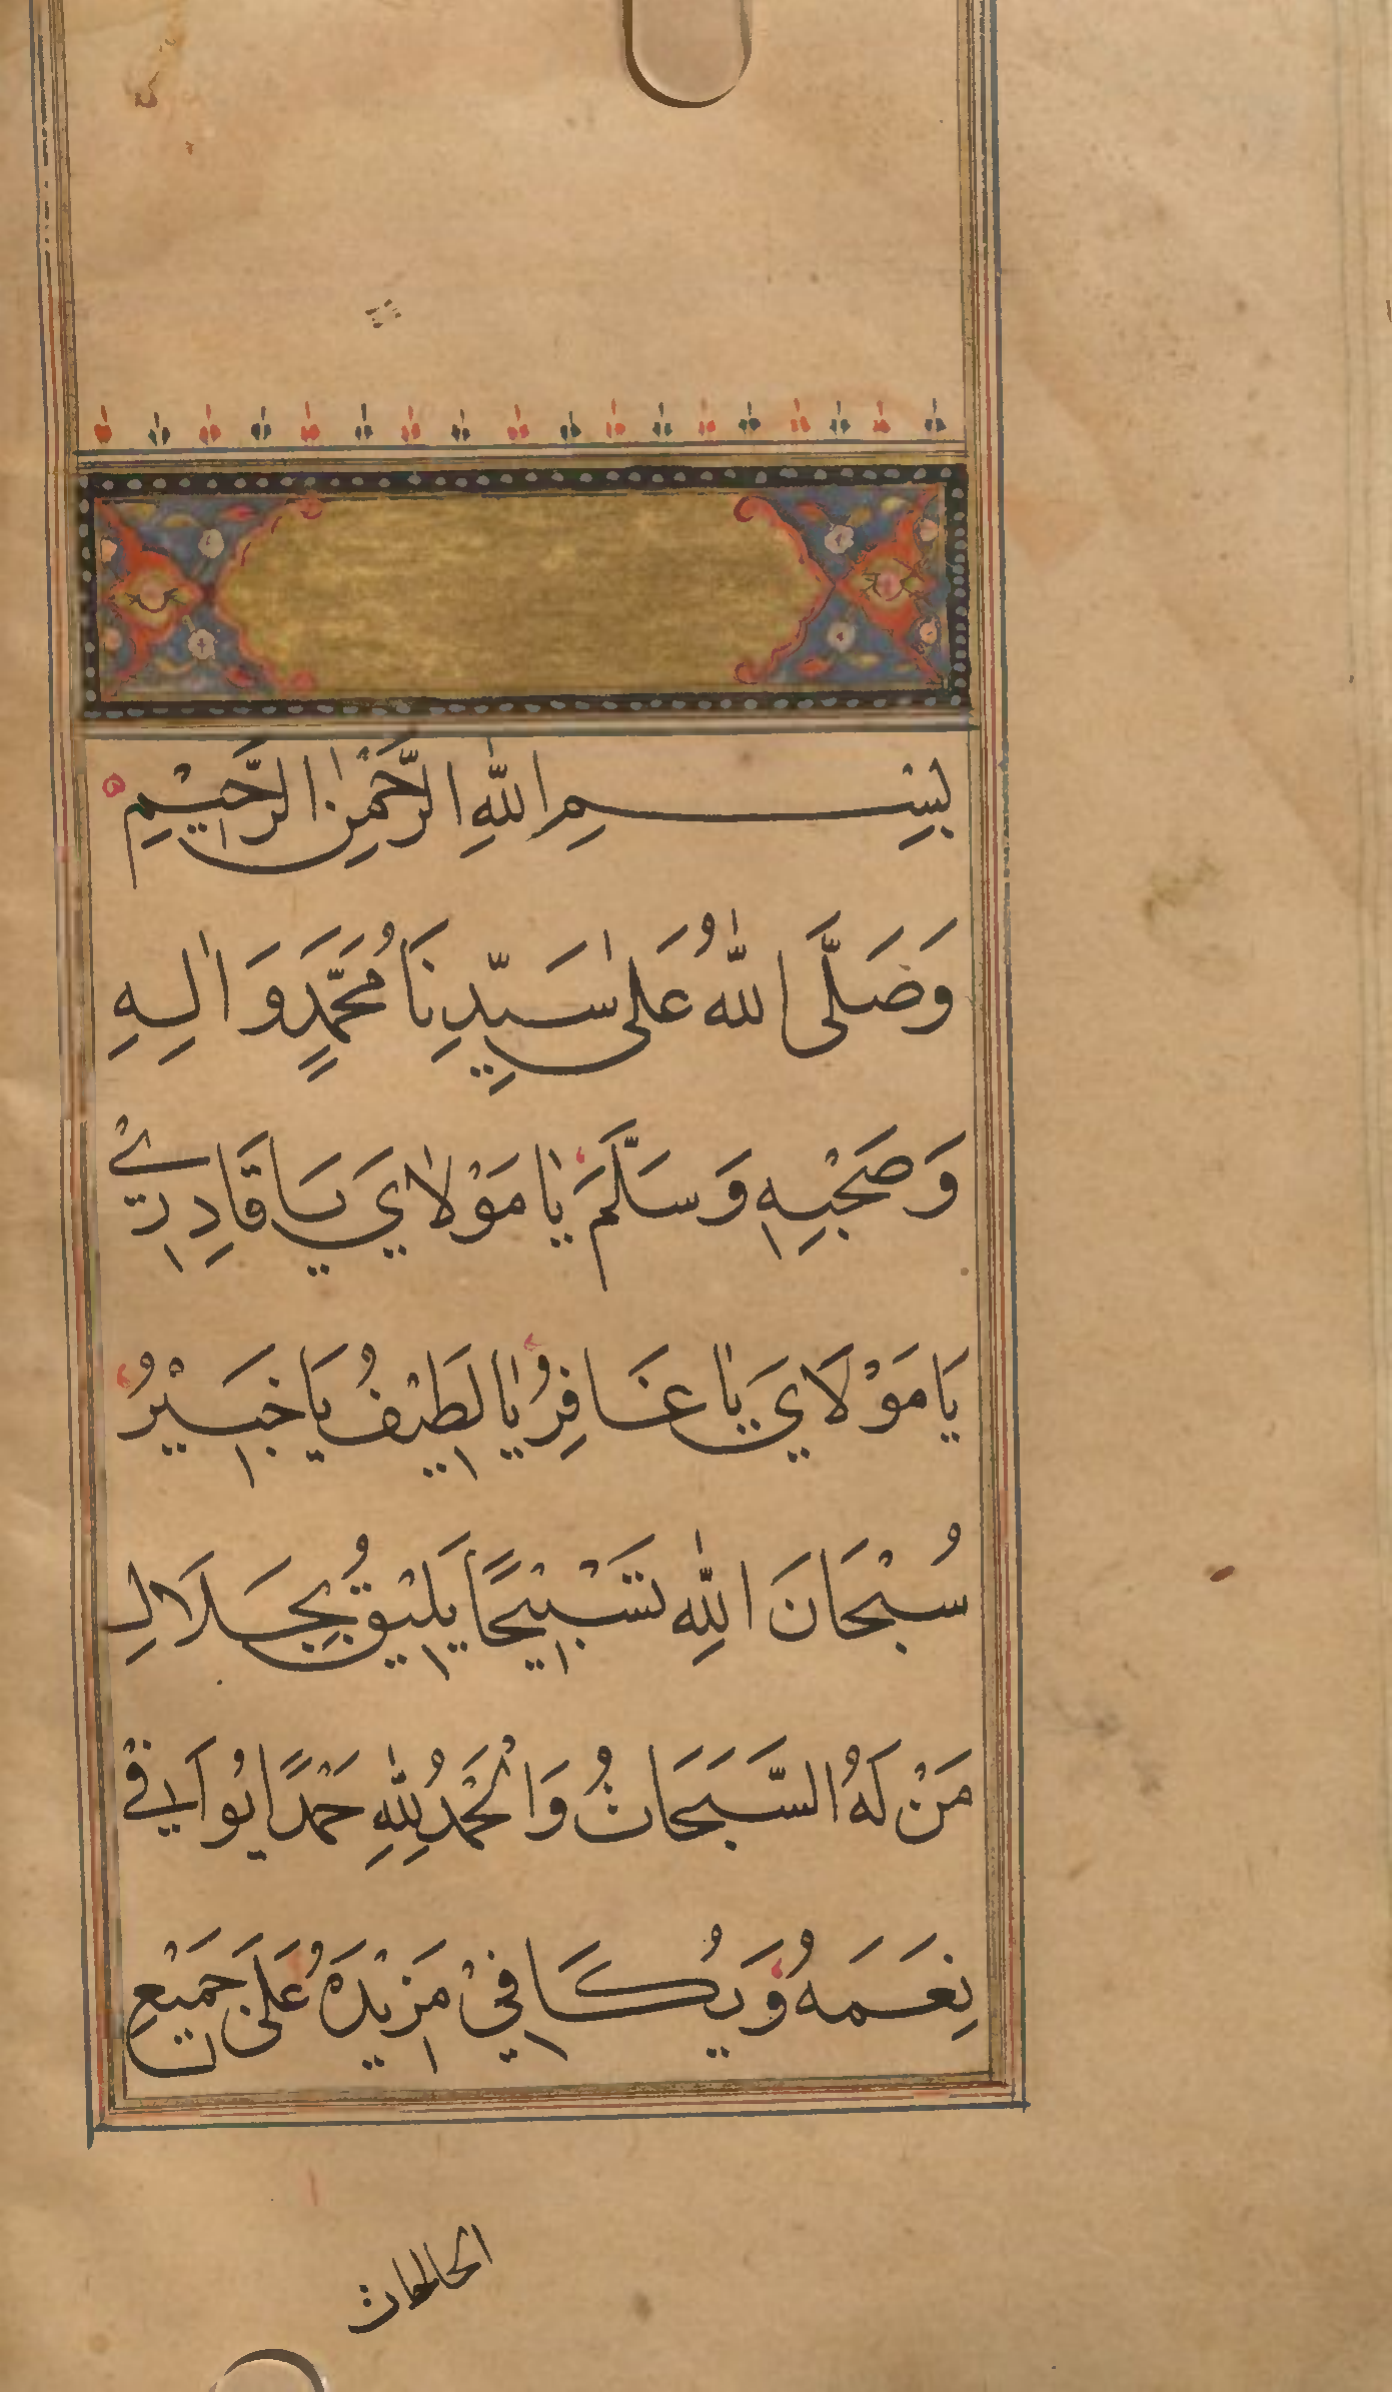 بِسْمِ اللّٰهِ الرَّحْمٰنِ الرَّحِيْمِ
وَصَلَّى اللّٰهُ عَلٰى سَيِّدِنَا مُحَمَّدٍ وَاٰلِهِ
وَصَحْبِهِ وَسَلَّمَ يَا مَوْلَايَ يَا قَادِرُ
يَا مَوْلَايَ يَا غَافِرُ يَا لَطِيْفُ يَا خَبِيْرُ
سُبْحَانَ اللّٰهِ تَسْبِيْحًا يَلِيْقُ بِجَلَالِ
مَنْ لَهُ السَّبَحَاتُ وَالْحَمْدُ لِلّٰهِ حَمْدًا يُوَافِيْ
نِعَمَهُ وَيُكَافِيْ مَزِيْدَهُ عَلٰى جَمِيْعِ
الحالات